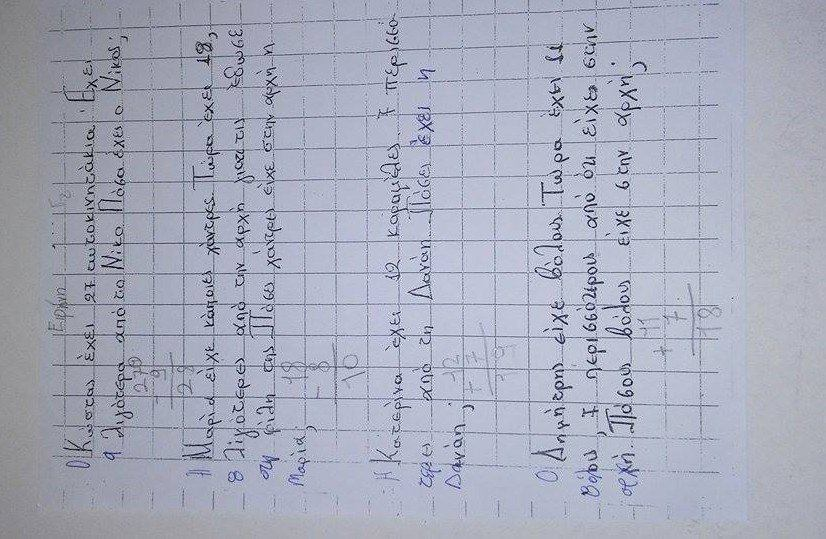 Ειρήνη
Ο Κώστας έχει 27 αυτοκινητάκια. Έχει
9 λιγότερα από το Νίκο. Πόσα έχει ο Νίκος;
27
- 9
28
Η Μαρία είχε κάποιες χάντρες. Τώρα έχει 18,
8 λιγότερες από την αρχή γιατί τις έδωσε
στη φίλη της. Πόσες χάντρες είχε στην αρχή η
Μαρία;
18
- 8
10
Η Κατερίνα έχει 12 καραμέλες 7 περισσό
τερες από τη Δανάη. Πόσες έχει η
Δανάη;
12
+ 7
19
Ο Δημήτρης είχε βόλους. Τώρα έχει 11
βόλους, 7 περισσότερους από ότι είχε στην
αρχή. Πόσους βόλους είχε στην αρχή;
11
+ 7
18